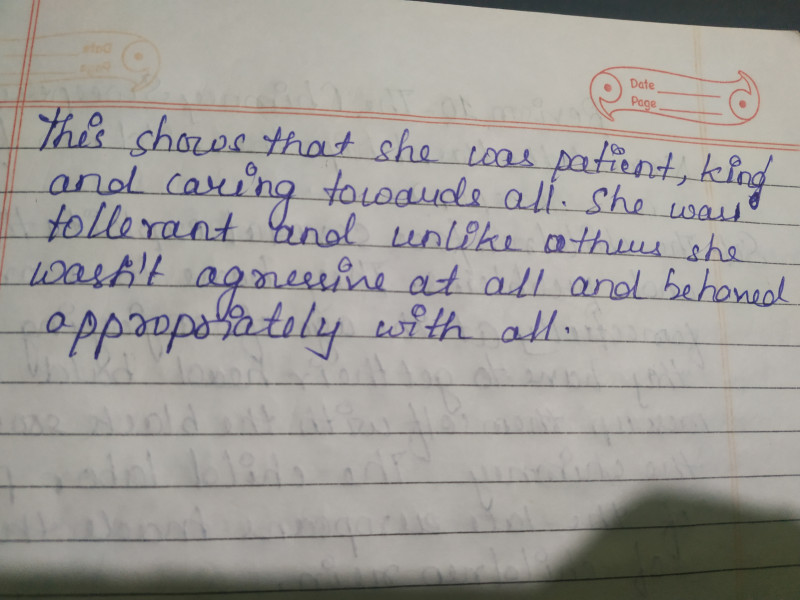 Date
Page
This shows that she was patient, kind
and caring towards all. She was
tollerant and unlike others she
wasn't agressive at all and behaved
appropriately with all.